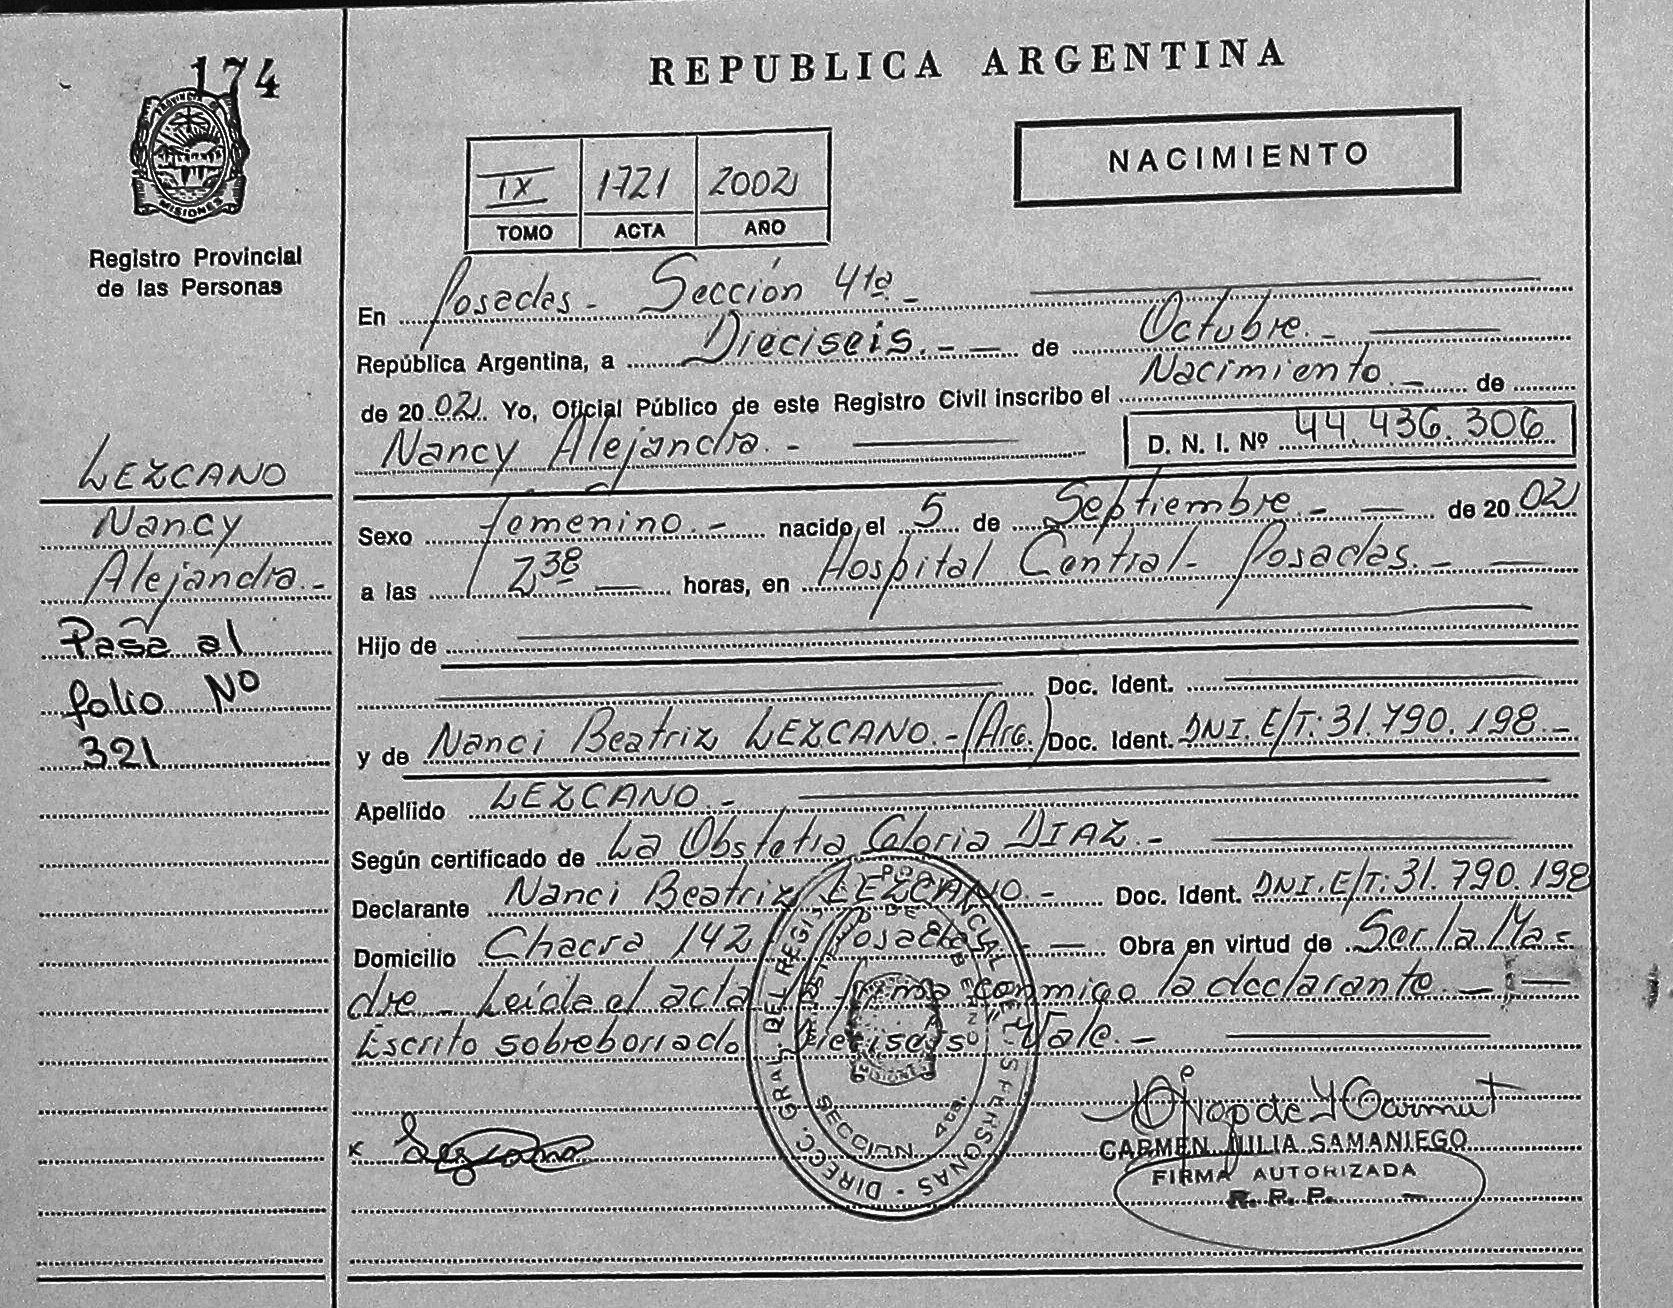 174
PROVINCIA DE
MISIONES
Registro Provincial
de las Personas
LEZCANO
Nancy
Alejandra.-
Pasa al
folio Nº
321
REPUBLICA ARGENTINA
NACIMIENTO
IX 1721 2002
TOMO ACTA AÑO
En Posadas - Sección 4ta -
República Argentina, a Dieciseis.- — de Octubre.-
de 2002. Yo, Oficial Público de este Registro Civil inscribo el Nacimiento.- de
Nancy Alejandra.- D. N. I. Nº 44.436.306
Sexo femenino.- nacido el 5 de Septiembre.- — de 2002
a las 2,30 — horas, en Hospital Central - Posadas.- —
Hijo de
Doc. Ident.
y de Nanci Beatriz LEZCANO.-(Arg.) Doc. Ident. DNI.E/T:31.790.198.-
Apellido LEZCANO.-
Según certificado de La Obstetra Gloria DIAZ.-
Declarante Nanci Beatriz LEZCANO.- Doc. Ident. DNI.E/T:31.790.198
Domicilio Chacra 142 Posadas - — Obra en virtud de Ser la Ma-
dre - Leída el acta firma conmigo la declarante.- —
Escrito sobreborrado "Dieciseis" Vale.-
Lezcano
CARMEN JULIA SAMANIEGO
FIRMA AUTORIZADA
R. P. P.
DIRECC. GRAL. DEL REG. PROVINCIAL DE LAS PERSONAS -
SECCION 4ta.
MISIONES